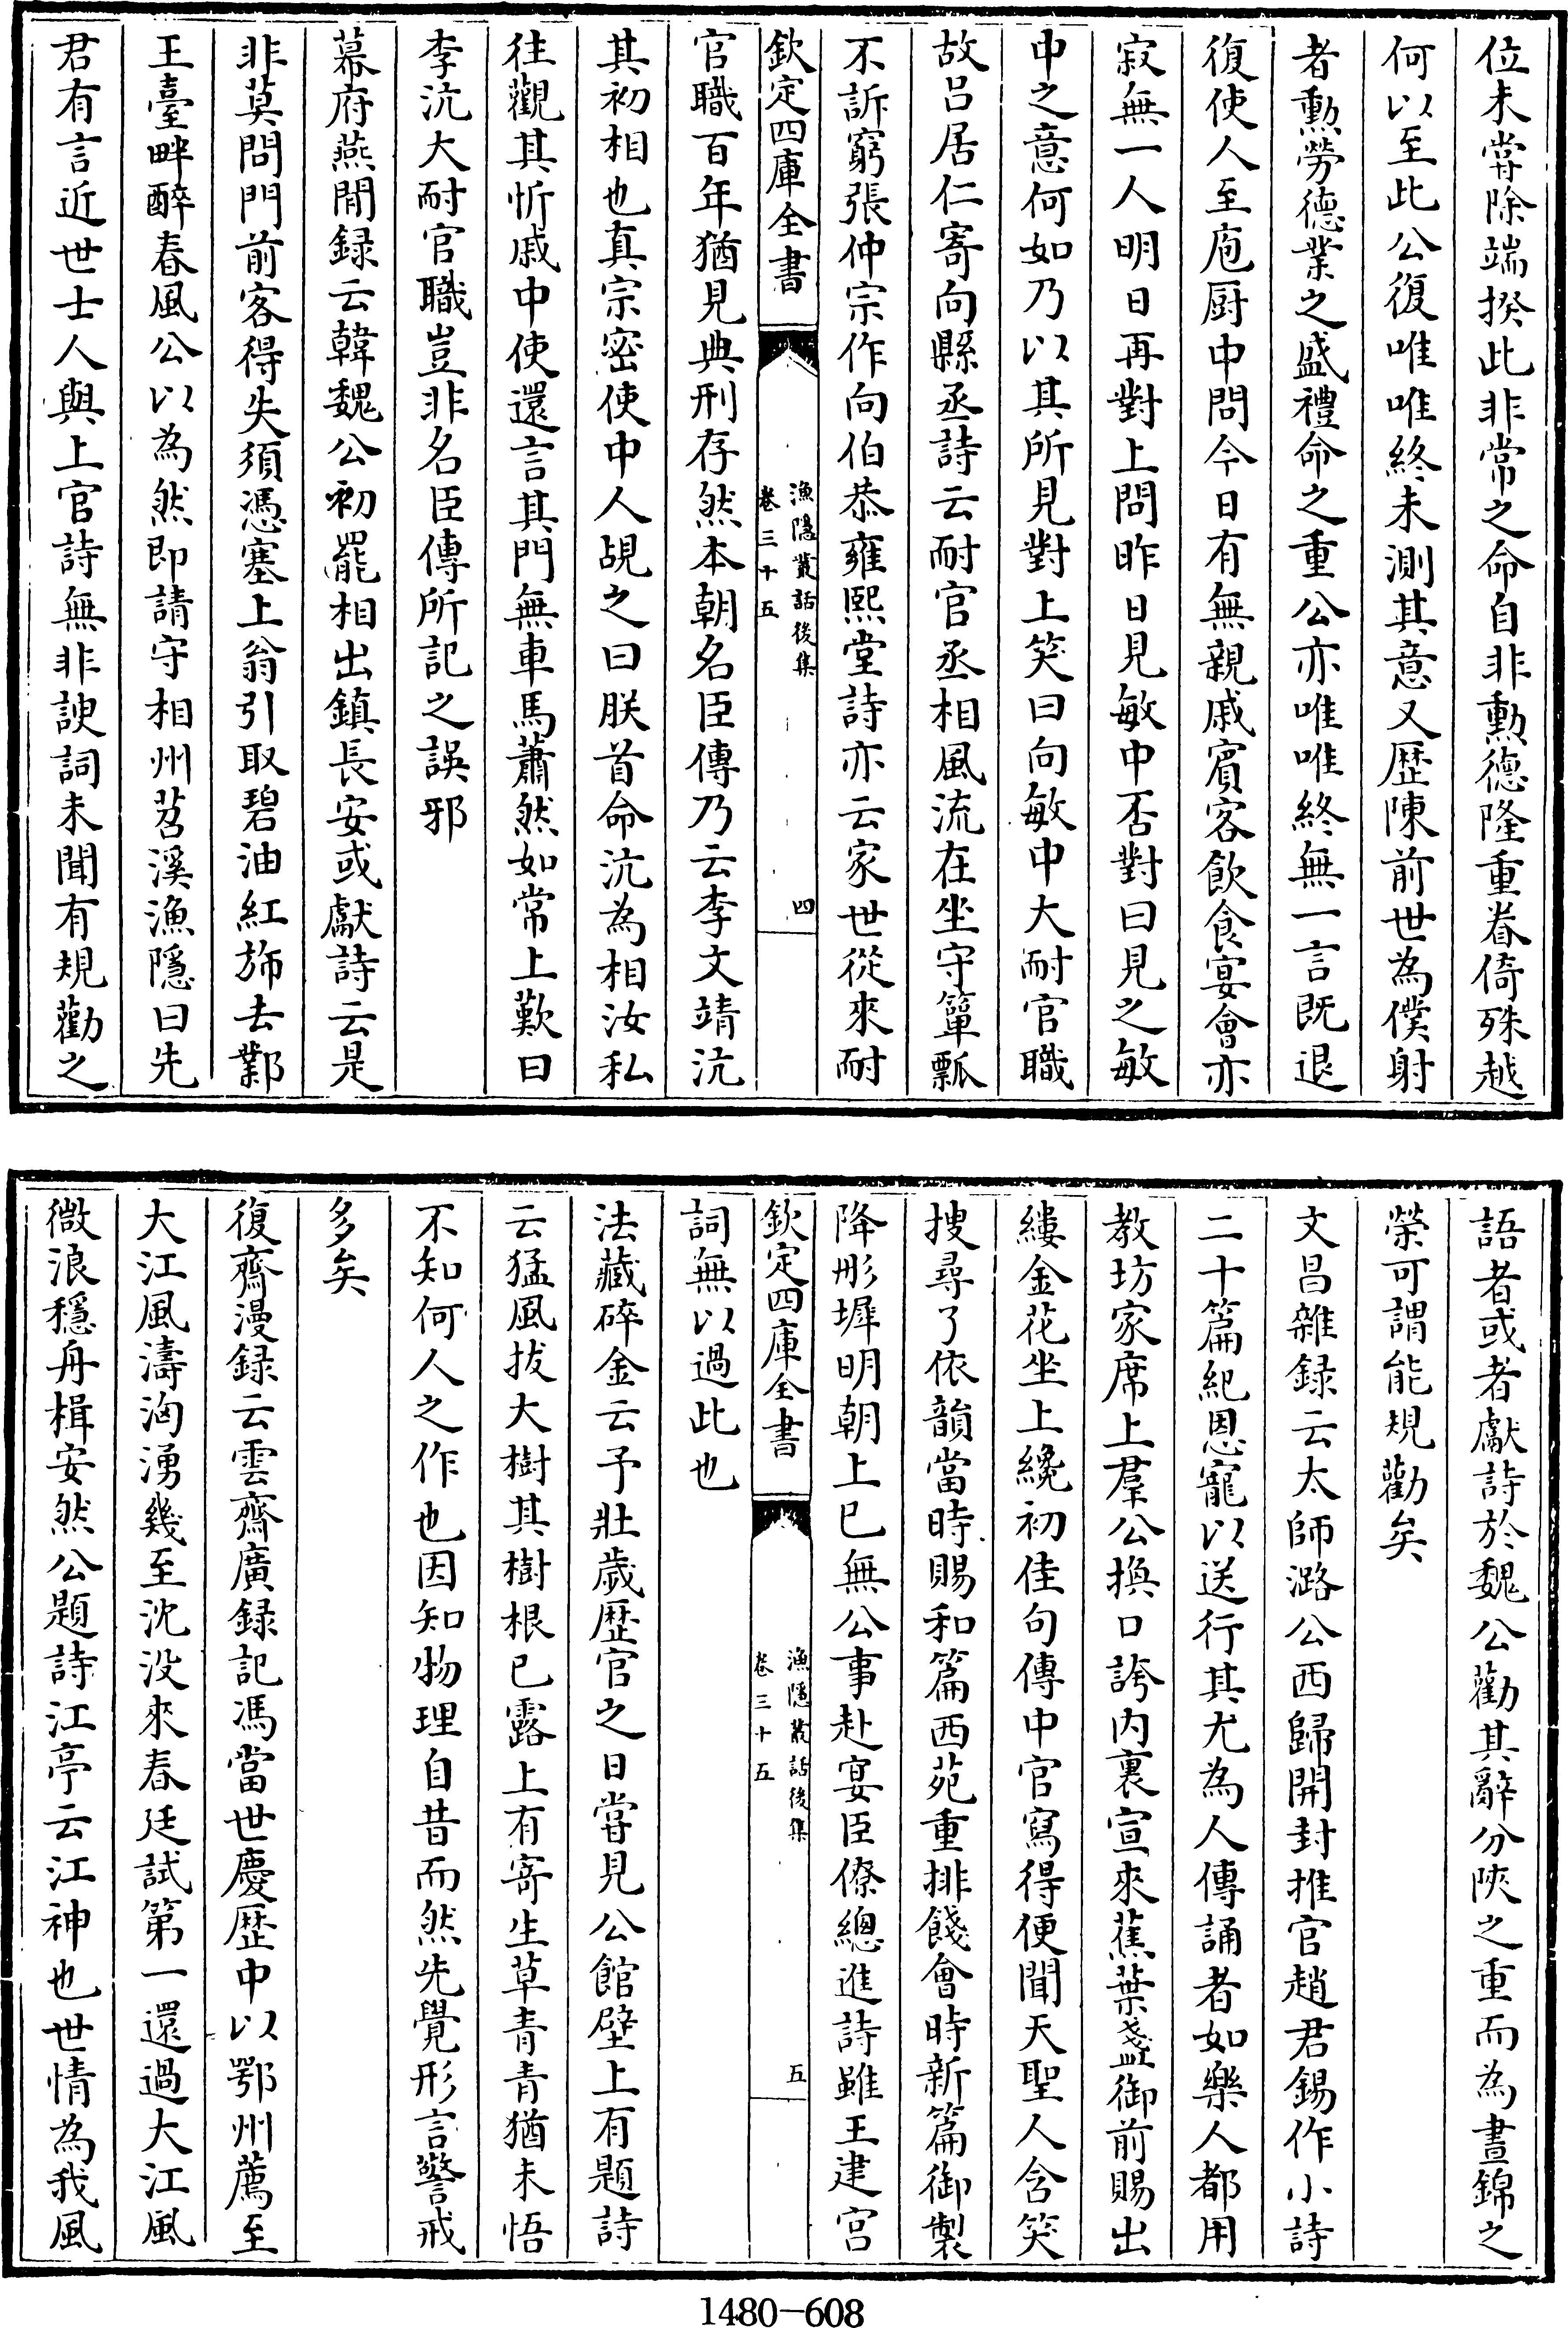 位未嘗除端揆此非常之命自非勲德隆重眷倚殊越
何以至此公復唯唯終未測其意又歴陳前世為僕射
者勲勞德業之盛禮命之重公亦唯唯終無一言既退
復使人至庖厨中問今日有無親戚賓客飲食宴會亦
寂無一人明日再對上問昨日見敏中否對曰見之敏
中之意何如乃以其所見對上笑曰向敏中大耐官職
故吕居仁寄向縣丞詩云耐官丞相風流在坐守簞瓢
不訴窮張仲宗作向伯恭雍熙堂詩亦云家世從來耐
欽定四庫全書
漁隱叢話後集
卷三十五
四
官職百年猶見典刑存然本朝名臣傳乃云李文靖沆
其初相也真宗密使中人覘之曰朕首命沆為相汝私
往觀其忻戚中使還言其門無車馬蕭然如常上歎曰
李沆大耐官職豈非名臣傳所記之誤邪
幕府燕閒録云韓魏公初罷相出鎮長安或獻詩云是
非莫問門前客得失須憑塞上翁引取碧油紅斾去鄴
王臺畔醉春風公以為然即請守相州苕溪漁隱曰先
君有言近世士人與上官詩無非諛詞未聞有規勸之
語者或者獻詩於魏公勸其辭分陜之重而為晝錦之
榮可謂能規勸矣
文昌雜録云太師潞公西歸開封推官趙君錫作小詩
二十篇紀恩寵以送行其尤為人傳誦者如樂人都用
教坊家席上羣公換口誇内裏宣來蕉葉盞御前賜出
縷金花坐上纔初佳句傳中官寫得便聞天聖人含笑
搜尋了依韻當時賜和篇西苑重排餞會時新篇御製
降彤墀明朝上已無公事赴宴臣僚總進詩雖王建宫
欽定四庫全書
漁隱叢話後集
卷三十五
五
詞無以過此也
法藏碎金云予壯歳歴官之日嘗見公館壁上有題詩
云猛風拔大樹其樹根已露上有寄生草青青猶未悟
不知何人之作也因知物理自昔而然先覺形言警戒
多矣
復齋漫録云雲齋廣録記馮當世慶歴中以鄂州薦至
大江風濤洶湧幾至沈没來春廷試第一還過大江風
微浪穩舟楫安然公題詩江亭云江神也世情為我風
1480-608